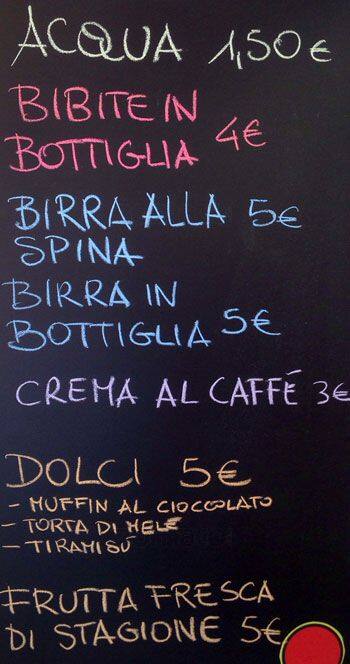 ACQUA 1,50€
BIBITE IN
BOTTIGLIA 4€
BIRRA ALLA 5€
SPINA
BIRRA IN
BOTTIGLIA 5€
CREMA AL CAFFÉ 3€
DOLCI 5€
- MUFFIN AL CIOCCOLATO
- TORTA DI MELE
- TIRAMISÚ
FRUTTA FRESCA
DI STAGIONE 5€